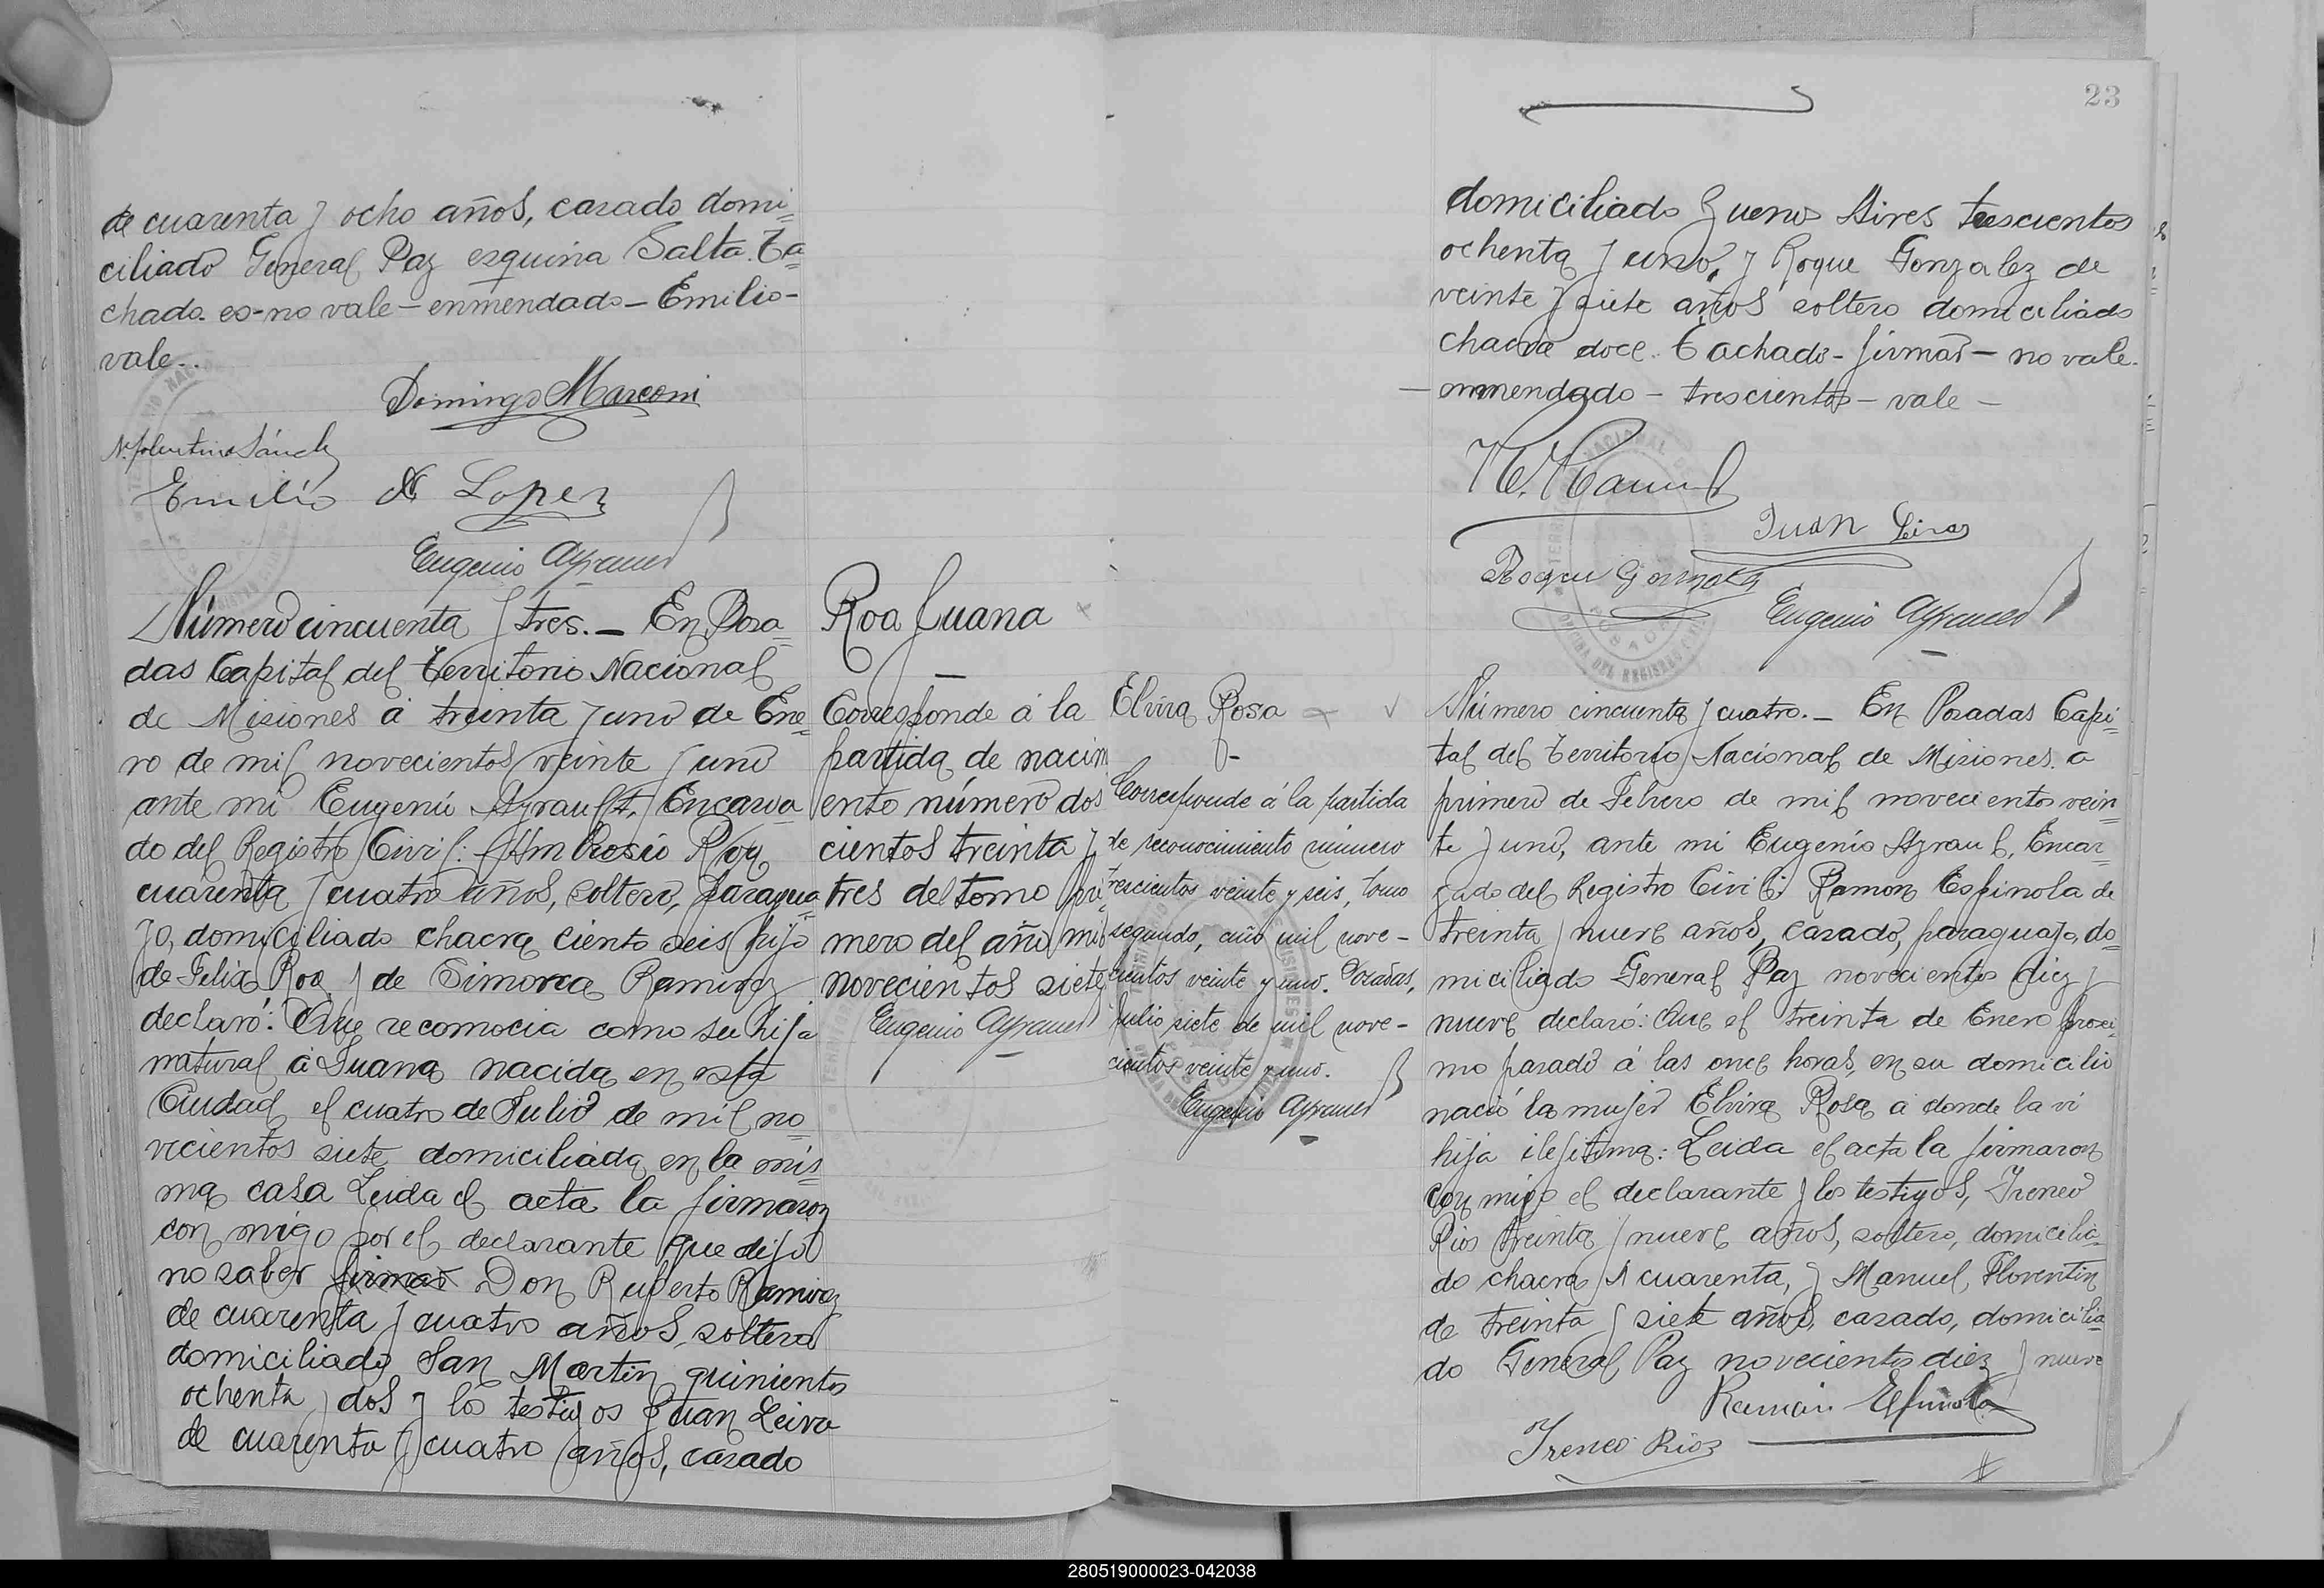 de cuarenta y ocho años, casado domi=
ciliado General Paz esquina Salta. Ta=
chado. eo-no vale - enmendado - Emilio -
vale..
Domingo Marconi
N. Tolentino Sánchez
Emilio A Lopez
Eugenio Ayrault
Número cincuenta y tres. - En Posa=
das Capital del Territorio Nacional
de Misiones á treinta y uno de Ene=
ro de mil novecientos veinte y uno
ante mi Eugenio Ayrault, Encarga
do del Registro Civil: Ambrosio Roa
cuarenta y cuatro años, soltero, paragua=
yo, domiciliado chacra ciento seis hijo
de Felix Roa y de Simorca Ramirez
declaró: Que reconocia como su hija
natural á Juana nacida en esta
Ciudad el cuatro de Julio de mil no=
vecientos siete domiciliada en la mis=
ma casa Leida el acta la firmaron
con migo por el declarante que dijo
no saber firmar Don Ruperto Ramirez
de cuarenta y cuatro años, soltero
domiciliado San Martin quinientos
ochenta y dos y los testigos Juan Leiva
de cuarenta y cuatro años, casado
Roa Juana
Corresponde á la
partida de nacim
ento número dos
cientos treinta y
tres del tomo pri=
mero del año mil
novecientos siete
Eugenio Ayrault
23
domiciliado Buenos Aires trescientos
ochenta y uno, y Roque Gonzalez de
veinte y siete años soltero domiciliado
chacra doce. Tachado - firmar - no vale.
- enmendado - trescientos - vale -
R. Ramirez
Juan Leiva
Roque Gonzalez
Eugenio Ayrault
Elvira Rosa
Corresponde á la partida
de reconocimiento número
trescientos veinte y seis, tomo
segundo, año mil nove-
cientos veinte y uno. Posadas,
Julio siete de mil nove-
cientos veinte y uno.
Eugenio Ayrault
Número cincuenta y cuatro. - En Posadas Capi=
tal del Territorio Nacional de Misiones. a
primero de Febrero de mil novecientos vein=
te y uno, ante mi Eugenio Ayrault, Encar=
gado del Registro Civil: Ramon Espinola de
treinta y nueve años, casado, paraguayo, do=
miciliado General Paz novecientos diez y
nueve declaró: Que el treinta de Enero proxi=
mo pasado á las once horas, en su domicilio
nació la mujer Elvira Rosa á donde la vi
hija ilejitima: Leida el acta la firmaron
con migo el declarante y los testigos, Ireneo
Rios treinta y nueve años, soltero, domicilia=
do chacra A cuarenta, y Manuel Florentin
de treinta y siete años, casado, domicilia=
do General Paz novecientos diez y nueve
Ramón Espinola
Ireneo Rios
280519000023-042038